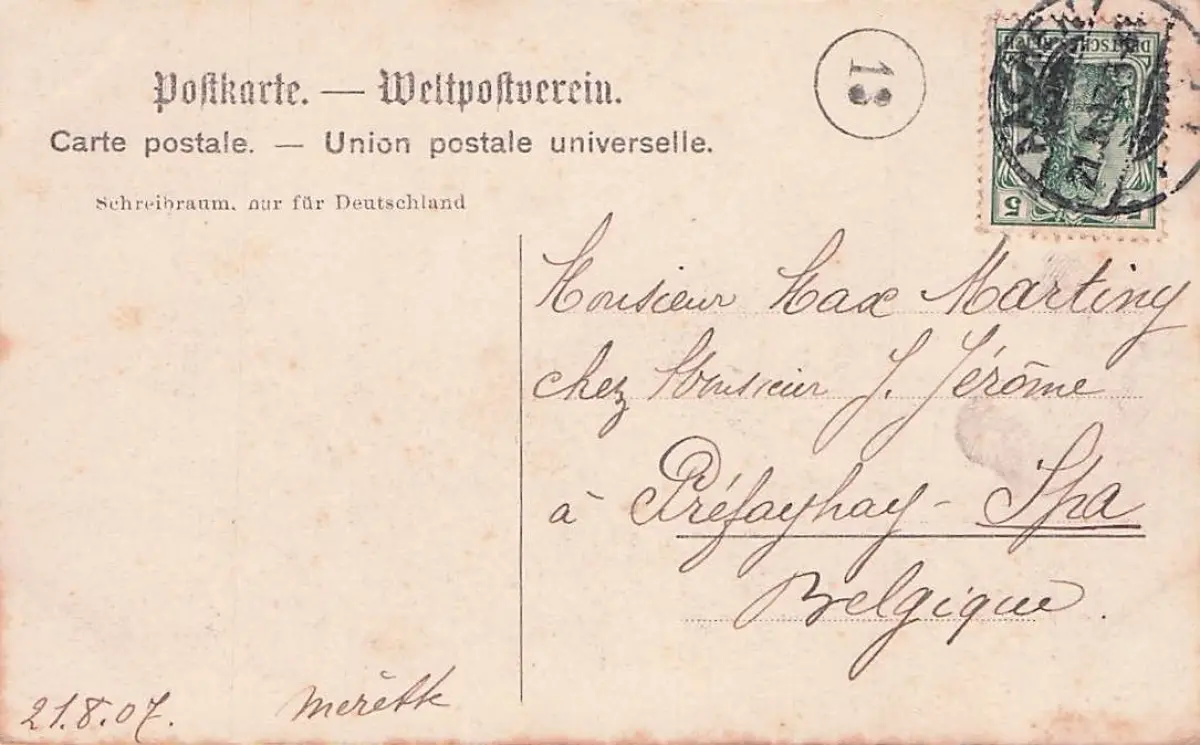 Postkarte. — Weltpostverein.
Carte postale. — Union postale universelle.
Schreibraum, nur für Deutschland
13
DEUTSCHES REICH
5
AACHEN
Monsieur Max Martiny
chez Monsieur J. Jérôme
à Préfayhay - Spa
Belgique.
21.8.07.